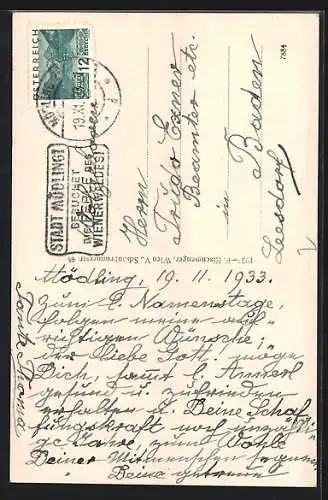 ÖSTERREICH
12
MÖDLING
19.XI.
STADT MÖDLING!
BESUCHET
DIE PERLE DES
WIENERWALDES!
7884
Herrn
Exner
Beamter etc.
in Baden
Leesdorf
Wien V., Schönbrunnerstr. 48
Mödling, 19. 11. 1933.
Zum l. Namenstage,
folgen meine auf-
richtigen Wünsche,
der liebe Gott möge
Dich, samt l. Annerl
gesund u. zufrieden
erhalten u. Deine Schaf
fungskraft noch
ge Jahre, zum Wohle
Deiner Mitmenschen segnen
Deine getreue
Tante